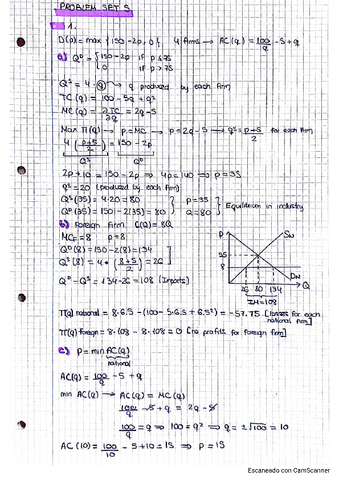 PROBLEM SET 5
1.
D(p) = max {150-2p, 0} 4 firms → AC(q) = 100/q - 5 + q
a) Q^D = { 150-2p if p ≤ 75
0 if p > 75
Q^S = 4 · q → q produced by each firm
TC(q) = 100 - 5q + q²
MC(q) = ∂TC/∂q = 2q - 5
Max Π(q) → p = MC → p = 2q - 5 → q^S = (p+5)/2 for each firm
4 ((p+5)/2) = 150 - 2p
Q^S Q^D
2p + 10 = 150 - 2p ⇒ 4p = 140 ⇒ p = 35
q^S = 20 (produced by each firm)
Q^S(35) = 4 · 20 = 80
Q^D(35) = 150 - 2(35) = 80
} p = 35 Q = 80 } Equilibrium in industry
b) Foreign Firm C(Q) = 8Q
MC_F = 8 p = 8
Q^D(8) = 150 - 2(8) = 134
Q^S(8) = 4 * ((8+5)/2) = 26
Q^D - Q^S = 134 - 26 = 108 (Imports)
P S_N
35
8
D_N Q
26 80 134
IM = 108
Π(q) national = 8 · 6.5 - (100 - 5·6.5 + 6.5²) = -57.75 [losses for each national firm]
Π(q) foreign = 8 · 108 - 8 · 108 = 0 [no profits for foreign firm]
c) P = min AC(q)
national
AC(q) = 100/q - 5 + q
min AC(q) → AC(q) = MC(q)
100/q - 5 + q = 2q - 5
100/q = q ⇒ 100 = q² ⇒ q = √100 = 10
AC(10) = 100/10 - 5 + 10 = 15 ⇒ p = 15
Escaneado con CamScanner